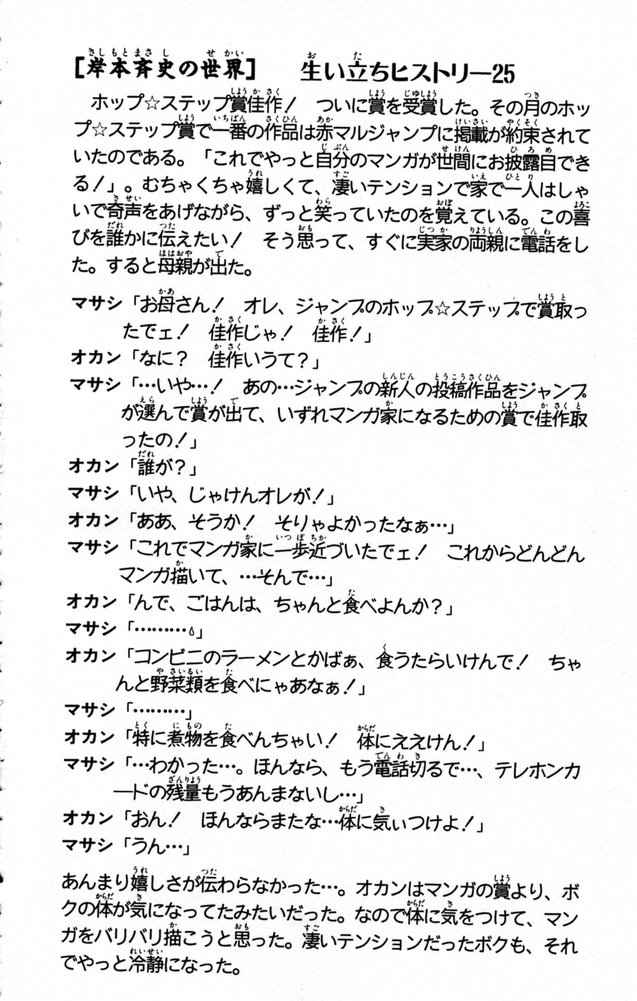 [岸本斉史の世界]　生い立ちヒストリー25
ホップ☆ステップ賞佳作！　ついに賞を受賞した。その月のホッ
プ☆ステップ賞で一番の作品は赤マルジャンプに掲載が約束されて
いたのである。「これでやっと自分のマンガが世間にお披露目でき
る！」。むちゃくちゃ嬉しくて、凄いテンションで家で一人はしゃ
いで奇声をあげながら、ずっと笑っていたのを覚えている。この喜
びを誰かに伝えたい！　そう思って、すぐに実家の両親に電話をし
た。すると母親が出た。
マサシ「お母さん！　オレ、ジャンプのホップ☆ステップで賞取っ
たでェ！　佳作じゃ！　佳作！」
オカン「なに？　佳作いうて？」
マサシ「…いや…！　あの…ジャンプの新人の投稿作品をジャンプ
が選んで賞が出て、いずれマンガ家になるための賞で佳作取
ったの！」
オカン「誰が？」
マサシ「いや、じゃけんオレが！」
オカン「ああ、そうか！　そりゃよかったなぁ…」
マサシ「これでマンガ家に一歩近づいたでェ！　これからどんどん
マンガ描いて、…そんで…」
オカン「んで、ごはんは、ちゃんと食べよんか？」
マサシ「………」
オカン「コンビニのラーメンとかばぁ、食うたらいけんで！　ちゃ
んと野菜類を食べにゃあなぁ！」
マサシ「………」
オカン「特に煮物を食べんちゃい！　体にええけん！」
マサシ「…わかった…。ほんなら、もう電話切るで…、テレホンカ
ードの残量もうあんまないし…」
オカン「おん！　ほんならまたな…体に気ぃつけよ！」
マサシ「うん…」
あんまり嬉しさが伝わらなかった…。オカンはマンガの賞より、ボ
クの体が気になってたみたいだった。なので体に気をつけて、マン
ガをバリバリ描こうと思った。凄いテンションだったボクも、それ
でやっと冷静になった。